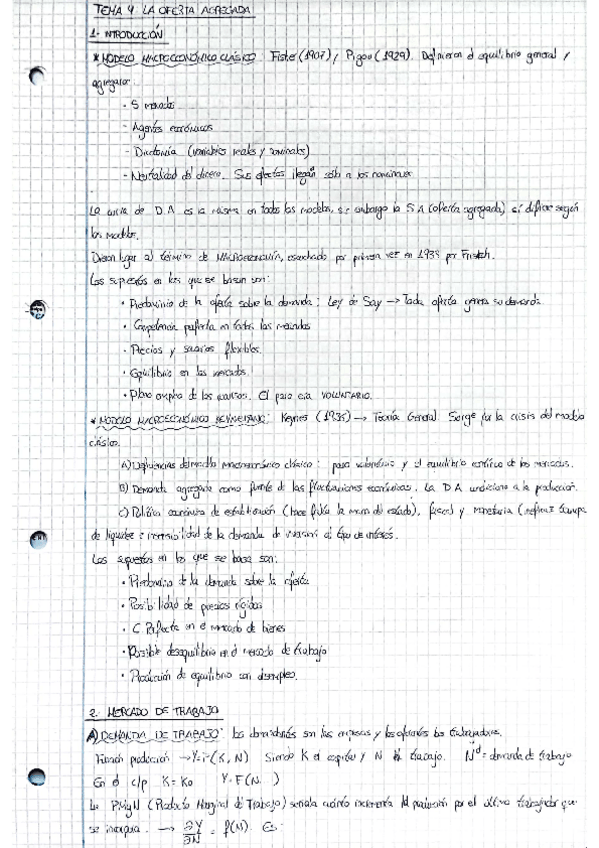 TEMA 4 LA OFERTA AGREGADA
1- INTRODUCCIÓN
* MODELO MACROECONÓMICO CLÁSICO: Fisher (1907) / Pigou (1929). Definieron el equilibrio general /
agregador.
- 5 mercados
- Agentes económicos
- Dicotomía (variables reales y nominales)
- Neutralidad del dinero. Sus efectos llegan sólo a los nominales
La curva de DA es la misma en todos los modelos, sin embargo la SA (oferta agregada) sí difiere según
los modelos.
Dieron lugar al término de MACROECONOMÍA, escuchado por primera vez en 1933 por Fristch.
Los supuestos en los que se basan son:
• Predominio de la oferta sobre la demanda: Ley de Say → Toda oferta genera su demanda
• Competencia perfecta en todos los mercados
• Precios y salarios flexibles.
• Equilibrio en los mercados
• Pleno empleo de los recursos. El paro era VOLUNTARIO.
* MODELO MACROECONÓMICO KEYNESIANO: Keynes (1935) → Teoría General. Surge por la crisis del modelo
clásico.
A) Deficiencias del modelo macroeconómico clásico: paro voluntario y el equilibrio continuo de los mercados.
B) Demanda agregada como fuente de las fluctuaciones económicas. La DA condiciona a la producción.
C) Política económica de estabilización (hace falta la mano del estado), fiscal y monetaria (
de liquidez e insensibilidad de la demanda de inversión al tipo de interés.
Los supuestos en los que se basa son:
• Predominio de la demanda sobre la oferta
• Posibilidad de precios rígidos
• C Perfecta en el mercado de bienes
• Posible desequilibrio en el mercado de trabajo
• Producción de equilibrio con desempleo.
2. MERCADO DE TRABAJO
A) DEMANDA DE TRABAJO: los demandantes son las empresas y los oferentes los trabajadores.
Función producción → Y=F(K, N) Siendo K el capital y N el trabajo. N^d = demanda de trabajo
En el c/p K=K0 Y=F(N )
La PMgN (Producto Marginal de Trabajo) señala cuánto incrementa la producción por el último trabajador que
se incorpora. → ∂Y/∂N = f(N). Es: